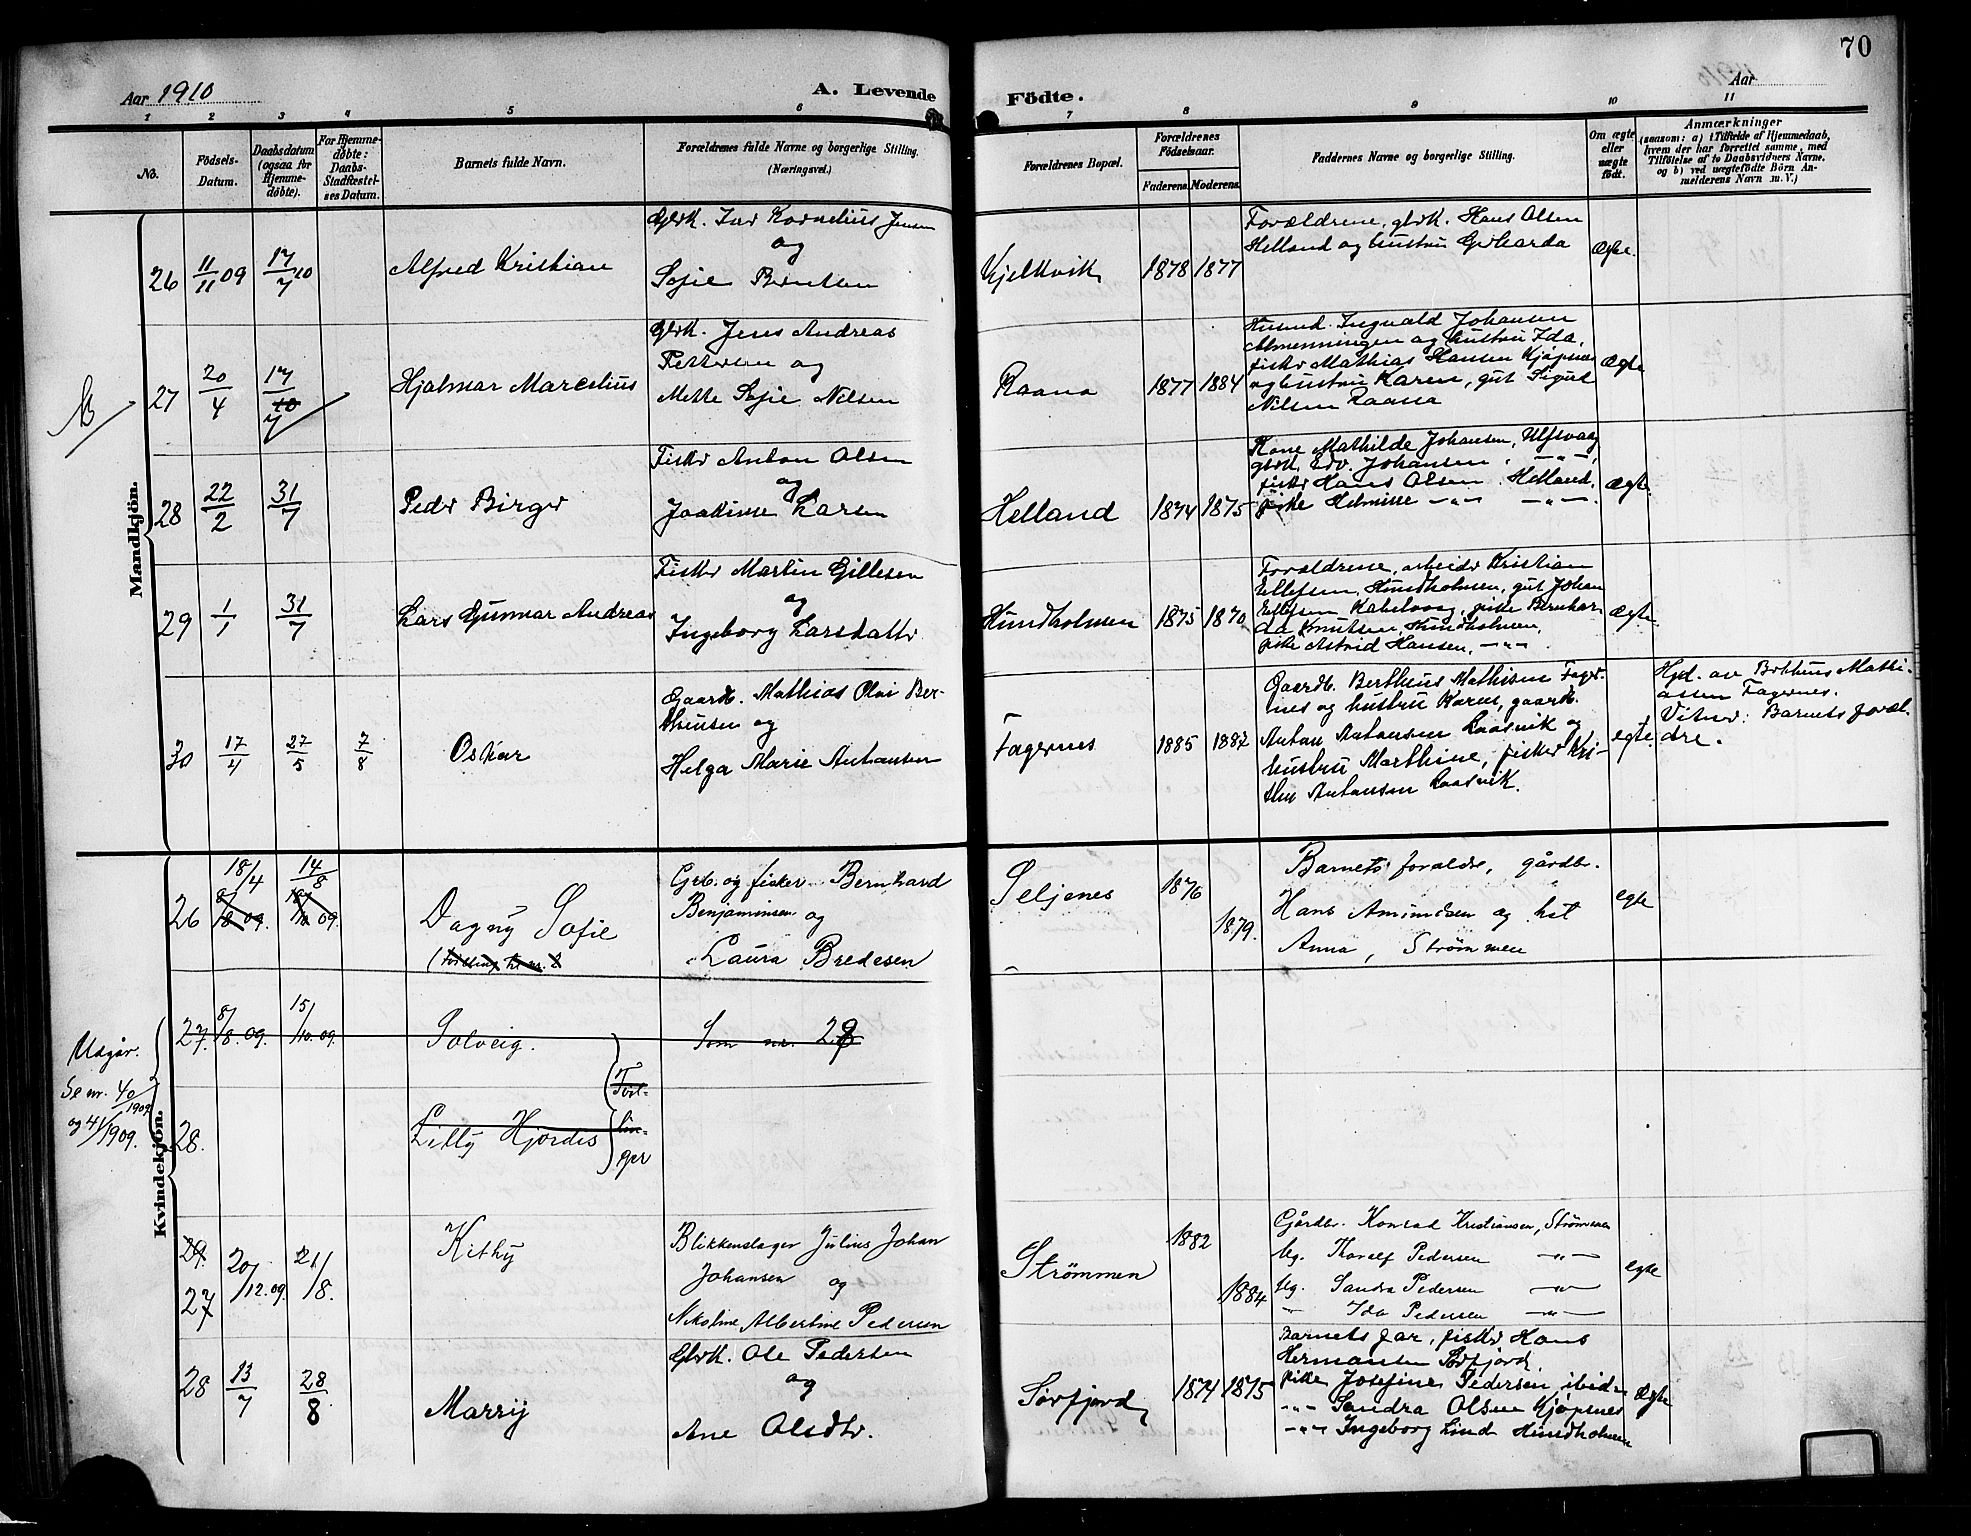 70
Aar 1910
A. Levende
Födte.
Aar
1 2 3 4 5 6 7 8 9 10 11
No.
Födsels-
Datum.
Daabsdatum
(ogsaa för
Hjemme-
döbte).
For Hjemme-
döbte:
Daabs-
Stadfæstel-
ses Datum.
Barnets fulde Navn.
Forældrenes fulde Navne og borgerlige Stilling.
(Næringsvei.)
Forældrenes Bopæl.
Forældrenes
Födselsaar.
Faderens.
Moderens.
Faddernes Navne og borgerlige Stilling.
Om ægte
eller
uægte
födt.
Anmærkninger
(saasom: a) i Tilfælde af Hjemmedaab,
hvem der har forrettet samme, med
Tilföielse af to Daabsvidners Navne,
og b) ved uægtefödte Börn An-
melderens Navn m. V.)
Mandkjön.
26 11/11 09 17/7 10
Alfred Kristian
Gbrk. Ivar Kornelius Jensen
og
Sofie Berntsen
Kjelkvik 1878 1877
Forældrene, gbrk. Hans Olsen
Helland og hustru Gerharda
Ægte.
27 20/4 17/7
Hjalmar Marcelius
Gbrk. Jens Andreas
Pettersen og
Mette Sofie Nilsen
Raana 1877 1884
Husmd. Ingvald Johansen
Almenningen og hustru Ida,
fisker Mathias Hansen Kjøpsnes
og hustru Karen, gut Sigurd
Nilsen Raana
Ægte
28 22/2 31/7
Peder Birger
Fisker Anton Olsen
og
Joakime Larsen
Helland 1874 1875
Kone Mathilde Johansen, Ulfsvaag
gbrk. Edv. Johansen, —"—,
fisker Hans Olsen Helland,
pike Helmine —"— —"—.
Ægte.
29 1/1 31/7
Lars Gunnar Andreas
Fisker Martin Gillesen
og
Ingeborg Larsdatter
Hundholmen 1875 1870
Forældrene, arbeider Kristian
Ellefsen, Hundholmen, gut Johan
Ellefsen Kabelvaag, pike Bernhar-
da Knutsen, Hundholmen,
pike Astrid Hansen, —"—.
Ægte
30 17/4 27/5 7/8
Oskar
Gaardb. Mathias Olai Ber-
theussen og
Helga Marie Antonsen
Fagernes 1885 1887
Gaardb. Bertheus Mathisen Fager-
nes og hustru Karen, gaardb.
Anton Antonsen Raasvik og
hustru Marthine, fisker Kri-
stian Antonsen Raasvik.
egte.
Hjd. av Bertheus Mathi-
assen Fagernes.
Vitner: Barnets foræl-
dre.
Kvindekjön.
26 18/4 14/8
8/8 09. 09.
Dagny Sofie
(tvilling til nr.
Grb. og fisker Bernhard
Benjaminsen og
Laura Bredesen
Seljenes 1876
1879.
Barnets forældre, gårdbr.
Hans Amundsen og hst
Anna, Strømmen
egte
27. 8/8. 09. 15/10. 09.
Solveig.
Som nr. 28
Utgår.
Se nr. 40/1909
og 41/1909.
28.
Lilly Hjördis
Tvil-
lin-
ger
29.
27 20/12. 09. 21/8.
Kithy
Blikkenslager Julius Johan
Johansen og
Nikoline Albertine Pedersen
Strömmen 1882
1884
Gårdbr. Konrad Kristiansen, Strömmen
Ug. Thoralf Pedersen —"—
Ug. Sandra Pedersen —"—
" Ida Pedersen —"—
egte
28 13/7 28/8
Marrij
Gbrk. Ole Pedersen
og
Ane Olsdtr.
Sörfjord 1874 1875
Barnets far, fisker Hans
Hermansen Sörfjord,
pike Josefine Pedersen ibid.
—"— Sandra Olsen Kjöpsnes
—"— Ingeborg Lind Hundholmen
Ægte